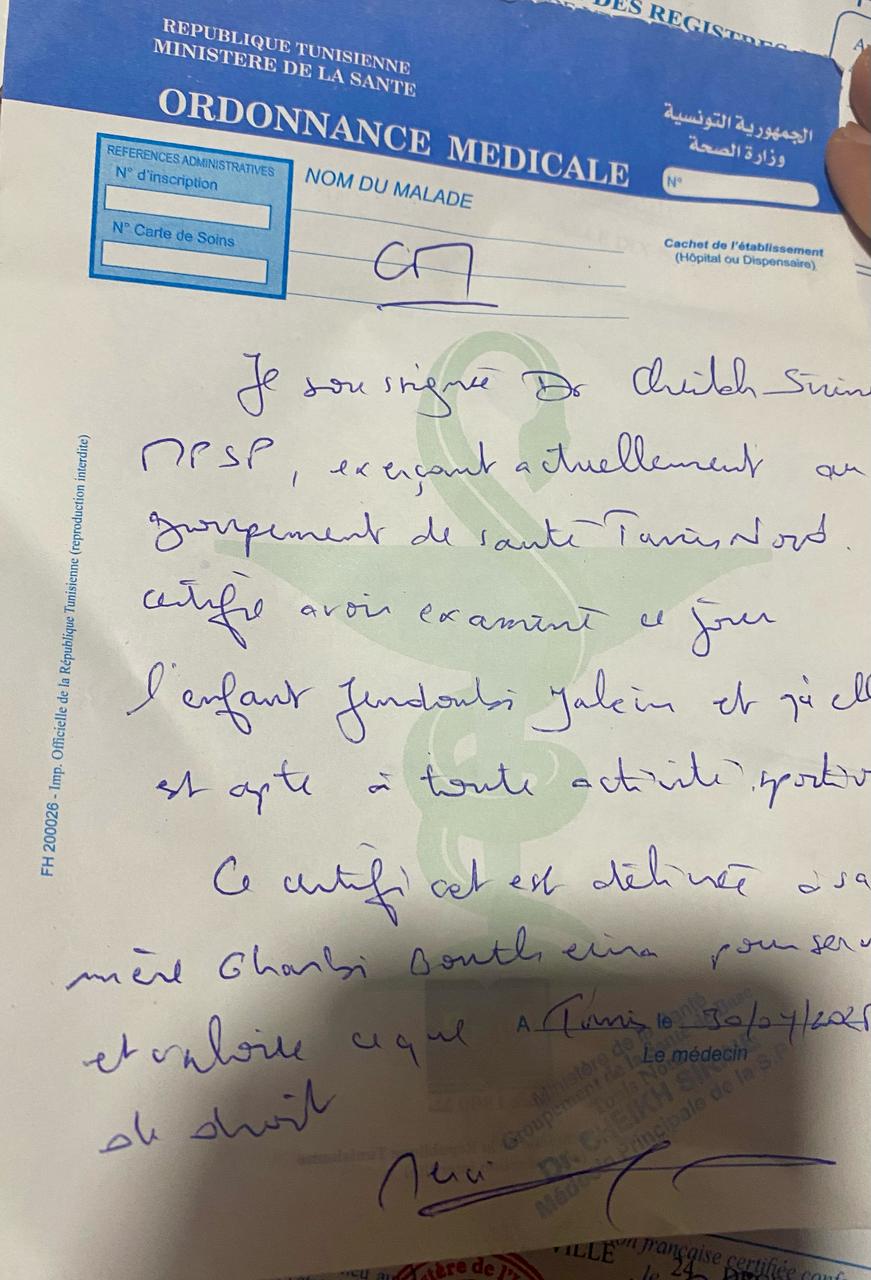 DES REGISTRES
REPUBLIQUE TUNISIENNE
MINISTERE DE LA SANTE
ORDONNANCE MEDICALE
الجمهورية التونسية
وزارة الصحة
N°
REFERENCES ADMINISTRATIVES
N° d'inscription
N° Carte de Soins
NOM DU MALADE
Cachet de l'établissement
(Hôpital ou Dispensaire)
CM
Je soussignée Dr Cheikh
MPSP, exerçant actuellement au
groupement de santé Tunis Nord.
certifie avoir examiné ce jour
l'enfant Jendoubi et qu'ell
est apte à toute activité sportiv
Ce certificat est délivré à sa
mère Gharbi Boutheina pour serv
et valoir ce que
de droit
A Tunis le 30/07/202
Le médecin
Ministère de la Santé
Groupement de la Santé de Base
Tunis Nord
Dr. CHEIKH SIRINE
Médecin Principale de la S.P
Merci
FH 200026 - Imp. Officielle de la République Tunisienne (reproduction interdite)
VILLE
on française certifiée conf
24